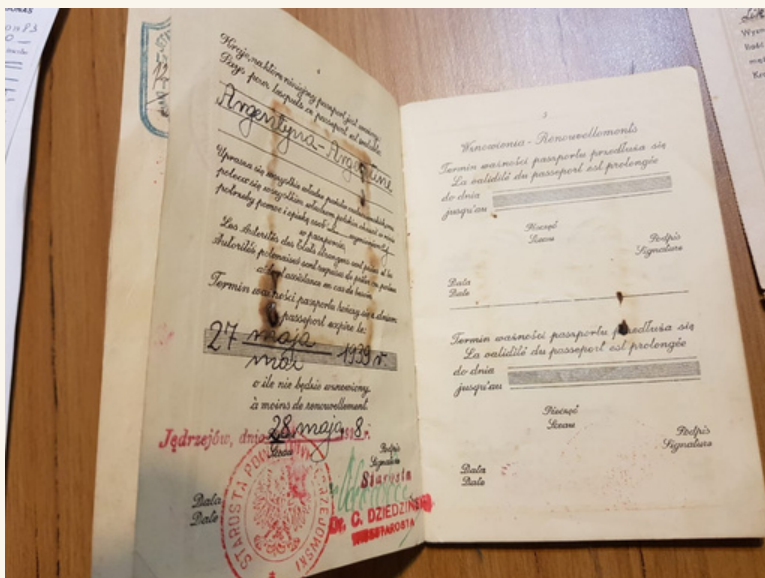 Kraje, na które niniejszy paszport jest ważny:
Pays pour lesquels ce passeport est valable:
Argentyna - Argentine
Uprasza się wszystkie władze państw
poleca się wszystkim władzom polskim okazać w razie
potrzeby pomoc i opiekę
w paszporcie.
Les Autorités des Etats étrangers sont priées et les
Autorités polonaises sont requises de prêter au porteur
assistance en cas de besoin.
Termin ważności paszportu kończy się z dniem
passeport expire le:
27 maja 1939 r.
mai
o ile nie będzie wznowiony.
à moins de renouvellement.
Jędrzejów, dnia 28 maja 8 r.
Sceau
Podpis
Signature
Starosta
Data
Date
STAROSTA POWIATOWY JĘDRZEJOWSKI
Dr. C. DZIEDZIŃSKI
WICESTAROSTA
3
Wznowienia - Renouvellements
Termin ważności paszportu przedłuża się
La validité du passeport est prolongée
do dnia
jusqu'au
Pieczęć
Sceau
Podpis
Signature
Data
Date
Termin ważności paszportu przedłuża się
La validité du passeport est prolongée
do dnia
jusqu'au
Pieczęć
Sceau
Podpis
Signature
Data
Date